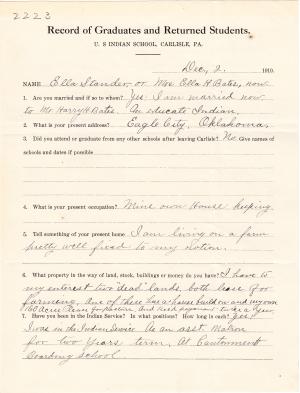 2223
Record of Graduates and Returned Students.
U. S INDIAN SCHOOL, CARLISLE, PA.
Dec, 2. 1910.
NAME Ella Stander or Mrs. Ella H Bates, now
1. Are you married and if so to whom? Yes. I am married now
to Mr Harry H Bates. An educate Indian,
2. What is your present address? Eagle City, Oklahoma,
3. Did you attend or graduate from any other schools after leaving Carlisle? No Give names of
schools and dates if possible
4. What is your present occupation? Mine own House keeping.
5. Tell something of your present home I am living on a farm
pretty well fixed to my Notion.
6. What property in the way of land, stock, buildings or money do you have? I have to
my enterest two dead lands, both lease for
farming. One of these has a house build on and my own
160 acres lease for pasture. And
7. Have you been in the Indian Service? In what positions? How long in each? Yes,
I was in the Indian Service As an asst. Matron
for two years term, At Cantonment
Boarding School